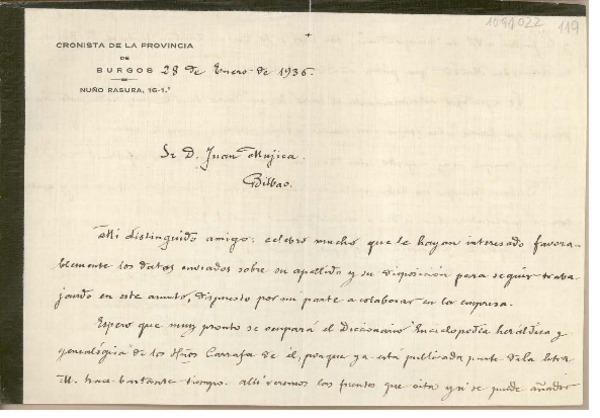 1091022 119
CRONISTA DE LA PROVINCIA
DE
BURGOS 28 de Enero de 1936.
NUÑO RASURA, 16-1.°
Sr D. Juan Mujica.
Bilbao.
Mi distinguido amigo: celebro mucho que le hayan interesado favora-
blemente los datos enviados sobre su apellido y su disposición para seguir traba-
jando en este asunto, dispuesto por mi parte a colaborar en la empresa.
Espero que muy pronto se ocupará el Diccionario "Enciclopedia heráldica y
genealógica" de los Hños Carrafa de él, porque ya está publicada parte de la letra
M. hace bastante tiempo. allí veremos las fuentes que cita y si se puede añadir